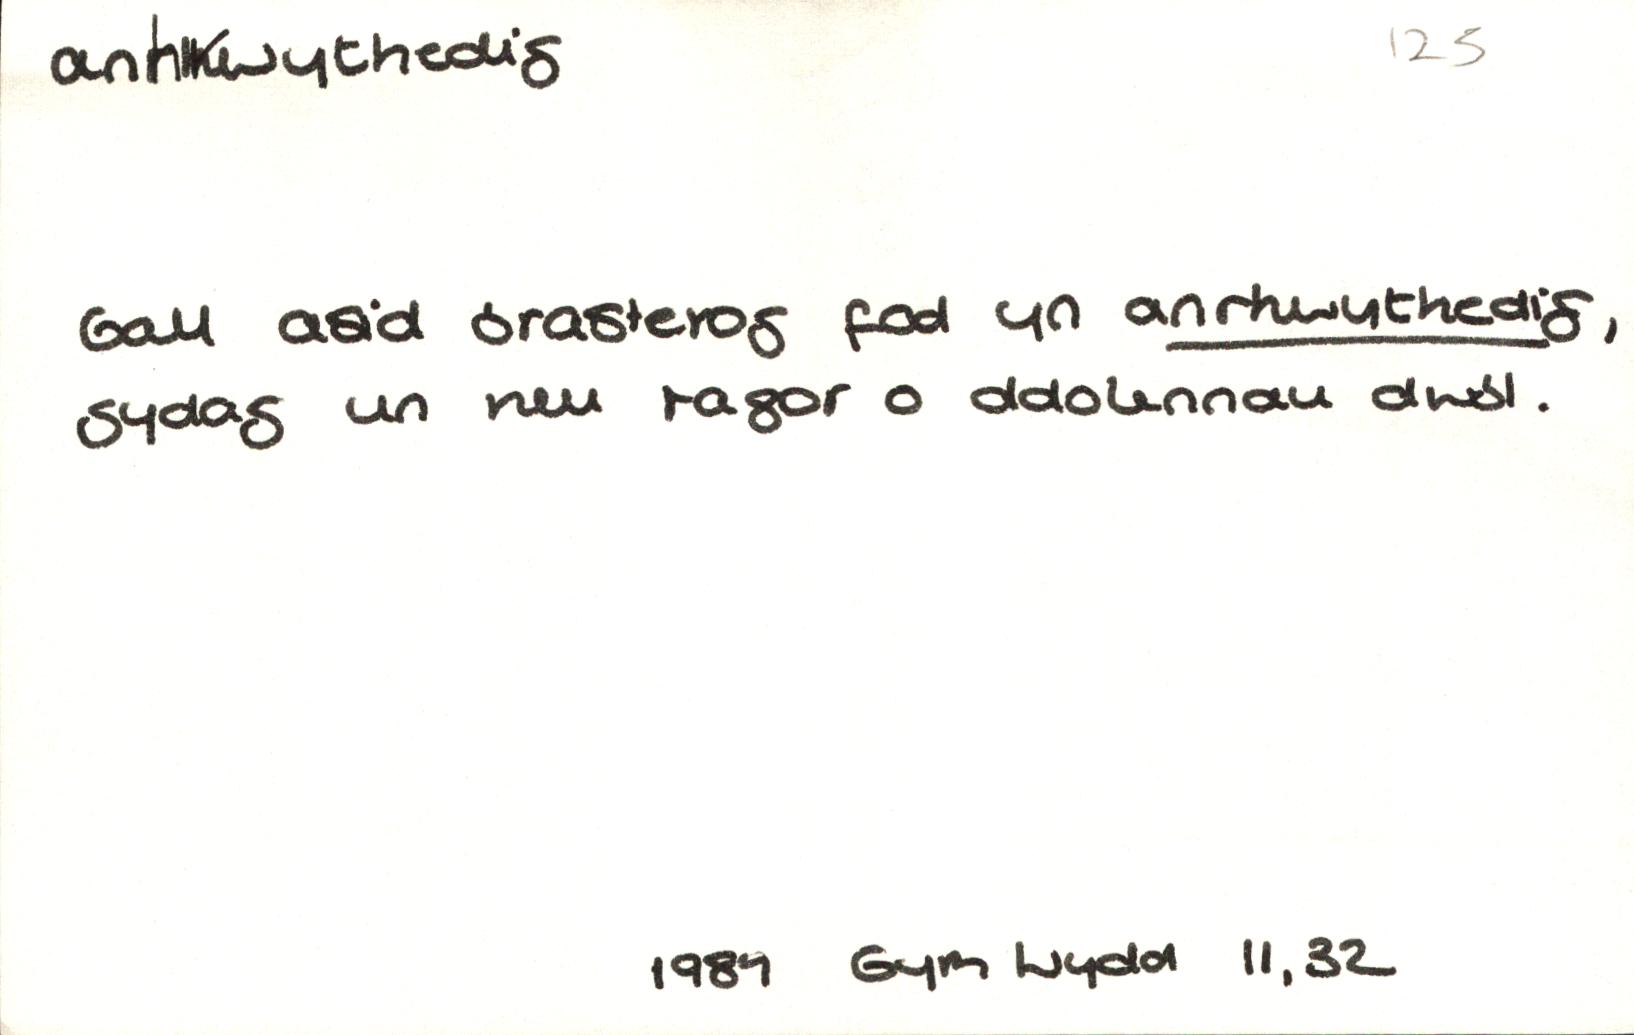 anhrwythedig 125
Gall asid brasterog fod yn anrhwythedig,
gydag un neu ragor o ddolennau dwbl.
1989 Gym Wydd 11,32